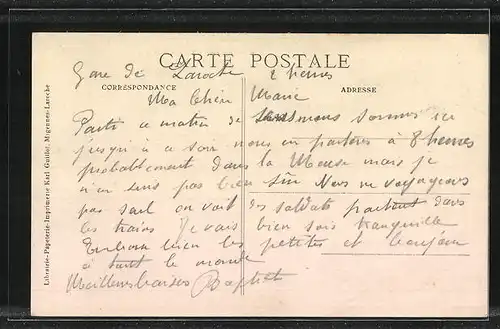 CARTE POSTALE
CORRESPONDANCE
ADRESSE
Librairie-Papeterie-Imprimerie Karl Guillot, Migennes-Laroche
Gare de Laroche 2 heures
Ma Chère Marie
Parti ce matin de nous sommes ici
jusqu'à ce soir nous en partons à 8 heures
probablement dans la Meuse mais je
n'en suis pas bien sûr Nous ne voyageons
pas seul on voit des soldats partout dans
les trains Je vais bien sois tranquille
Embrasse bien les petites et bonjour
à tout le monde
Meilleurs baisers Baptiste